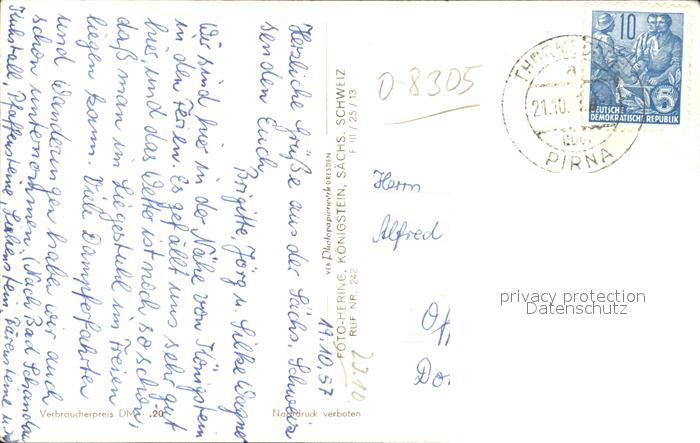 19.10.57
Herzliche Grüße aus der Sächs. Schweiz
senden Euch
Brigitte, Jörg u. Silke Wagner
Wir sind hier in der Nähe von Königstein
in den Ferien. Es gefällt uns sehr gut
hier, und das Wetter ist noch so schön,
daß man im Liegestuhl im Freien
liegen kann. Viele Dampferfahrten
und Wanderungen haben wir auch
schon unternommen. (Nach Bad Schandau
Kuhstall, Pfaffensteine, Lilienstein, Bärensteine u.
Verbraucherpreis DM -.20
Nachdruck verboten
VEB Photopapierwerk DRESDEN
FOTO-HERING, KÖNIGSTEIN, SÄCHS. SCHWEIZ
RUF NR. 242
F III / 25 / 13
23.10.
0-8305
Herrn
Alfred
Off
Do
privacy protection
Datenschutz
21.10.
PIRNA
10
5
DEUTSCHE
DEMOKRATISCHE REPUBLIK